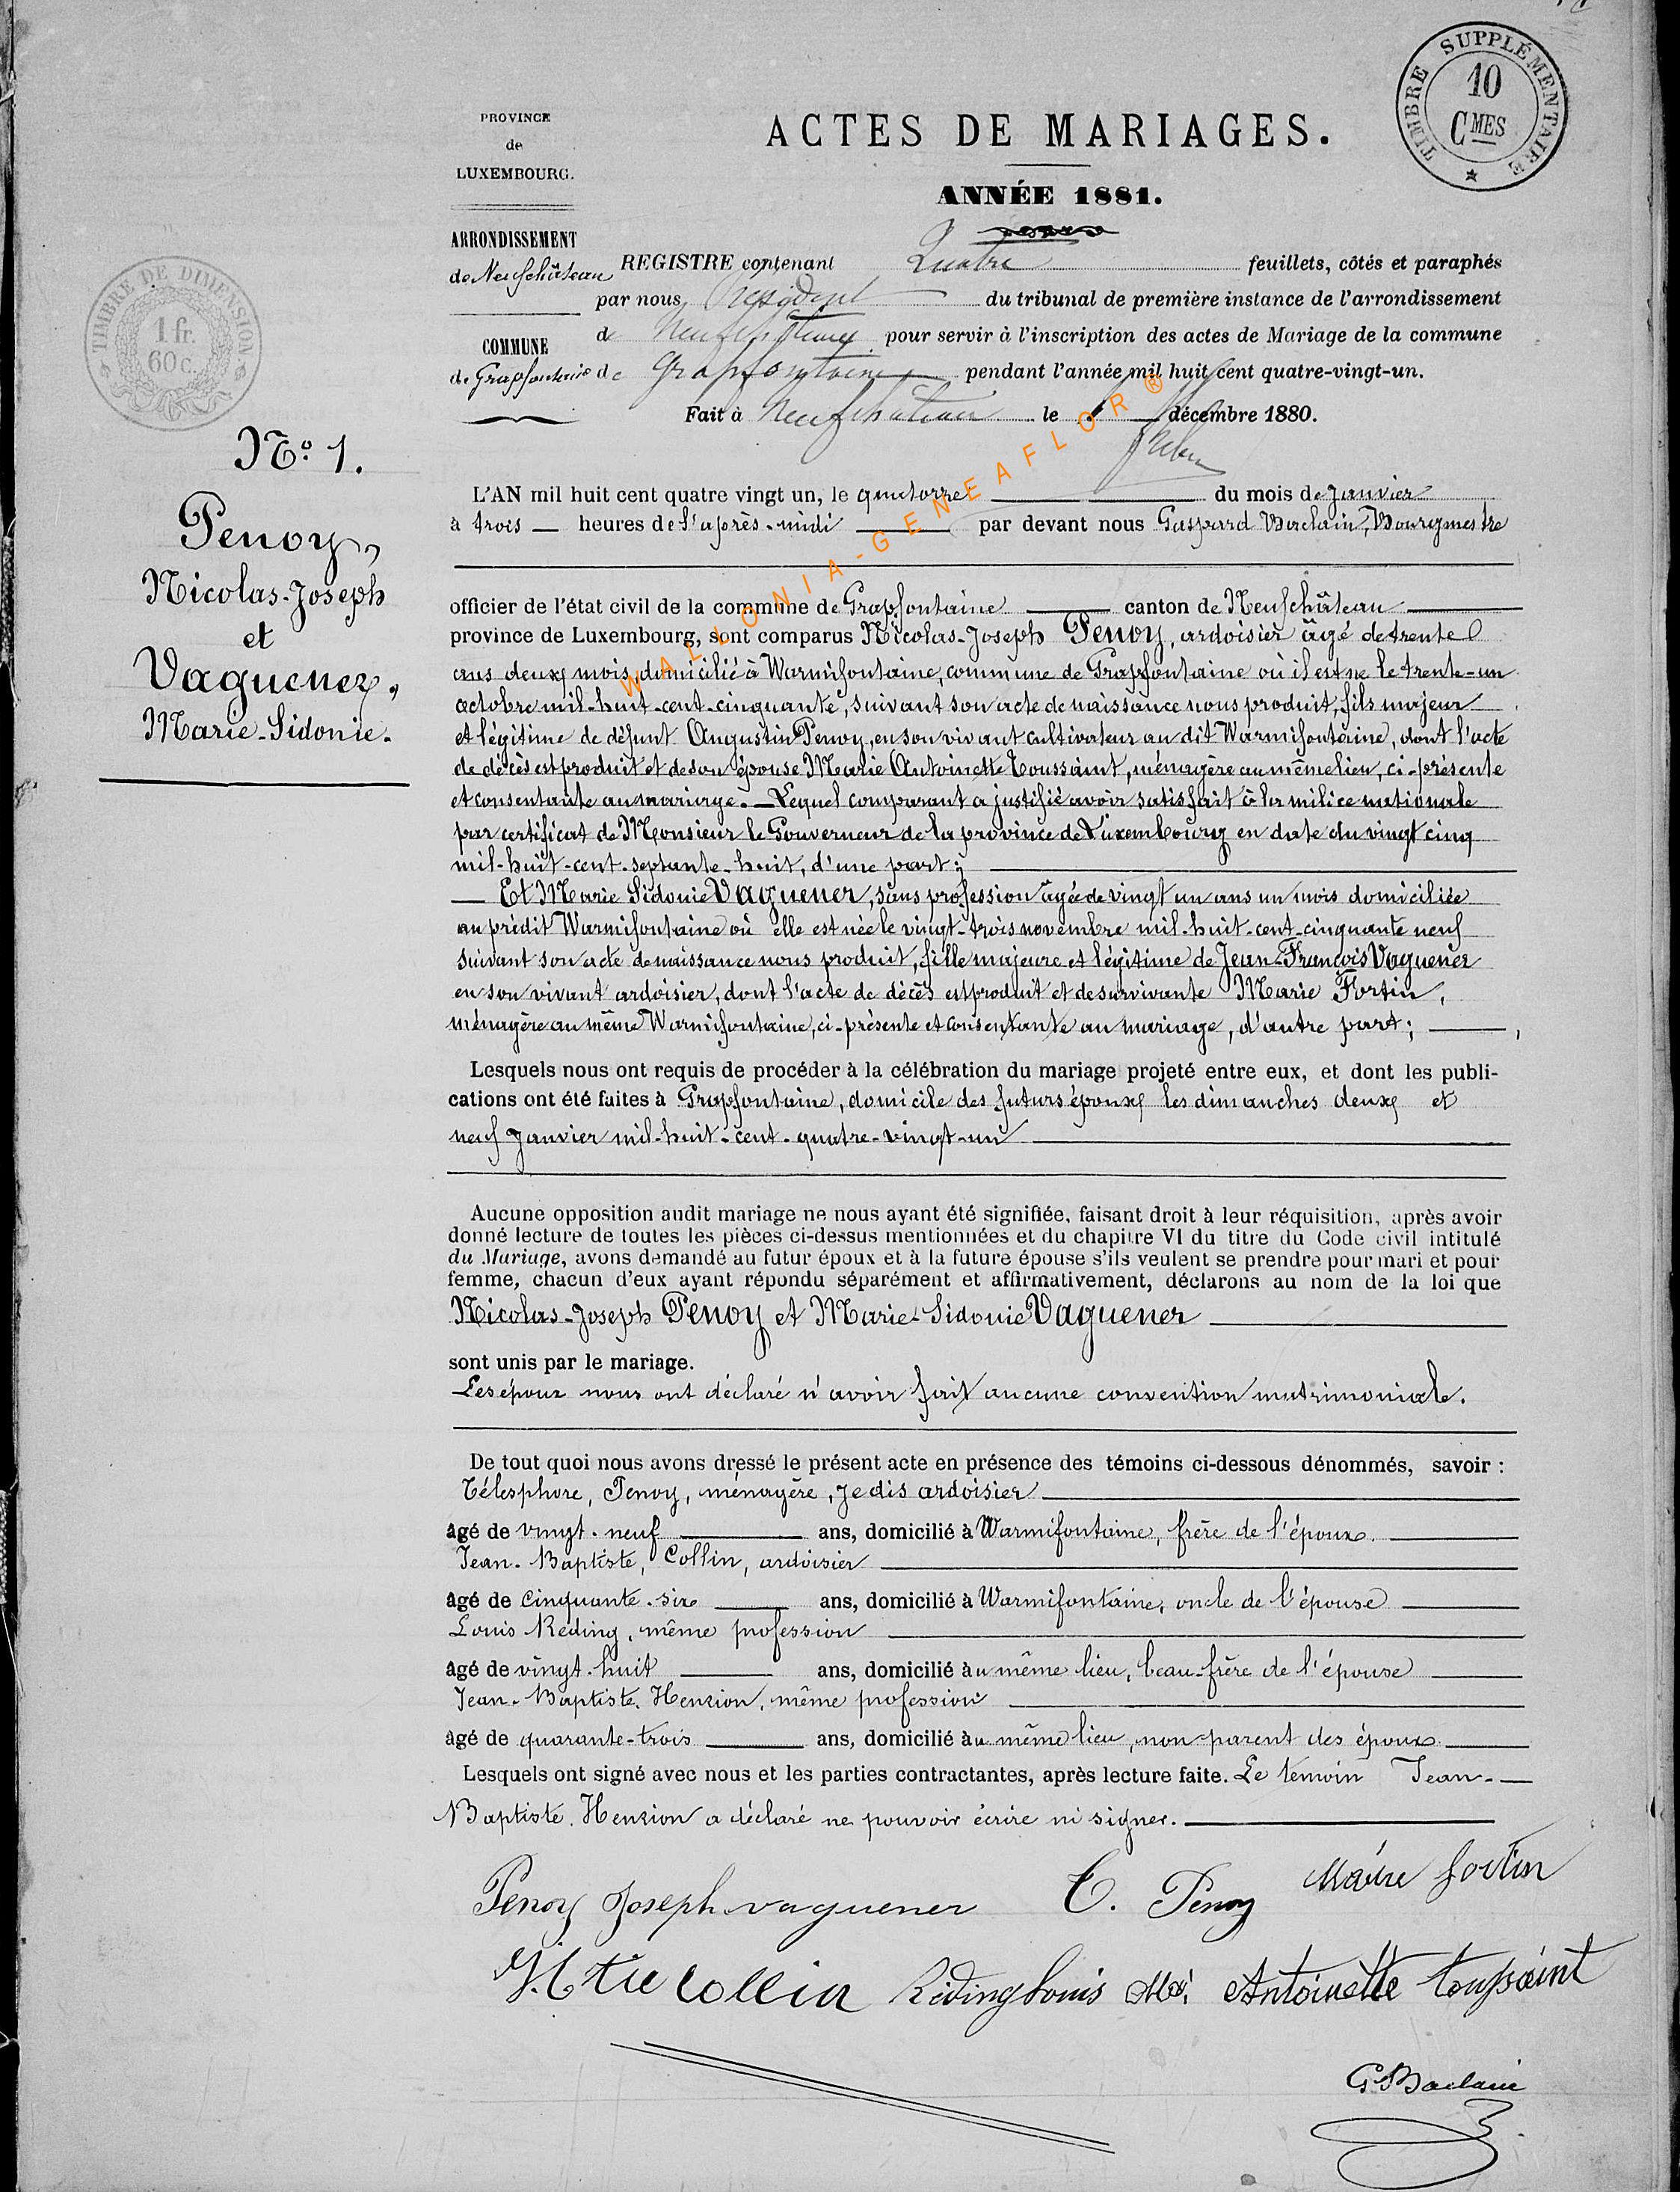 TIMBRE SUPPLÉMENTAIRE
10
CMES
PROVINCE
de
LUXEMBOURG.
ACTES DE MARIAGES.
ANNÉE 1881.
ARRONDISSEMENT
de Neufchâteau
REGISTRE contenant Quatre feuillets, côtés et paraphés
par nous, Président du tribunal de première instance de l'arrondissement
de Neufchâteau pour servir à l'inscription des actes de Mariage de la commune
COMMUNE
de Grapfontaine
de Grapfontaine pendant l'année mil huit cent quatre-vingt-un.
Fait à Neufchâteau le décembre 1880.
TIMBRE DE DIMENSION
1 fr.
60 c.
WALLONIA-GENEAFLOR®
No. 1.
Penoy,
Nicolas-Joseph
et
Vaguener,
Marie-Sidonie.
L'AN mil huit cent quatre vingt un, le quatorze du mois de Janvier
à trois heures de l'après-midi par devant nous Gaspard Baclain, Bourgmestre
officier de l'état civil de la commune de Grapfontaine canton de Neufchâteau
province de Luxembourg, sont comparus Nicolas-Joseph Penoy, ardoisier âgé de trente
ans deux mois, domicilié à Warmifontaine, commune de Grapfontaine où il est né le trente-un
octobre mil-huit-cent-cinquante, suivant son acte de naissance nous produit, fils majeur
et légitime de défunt Augustin Penoy, en son vivant cultivateur au dit Warmifontaine, dont l'acte
de décès est produit et de son épouse Marie Antoinette Toussaint, ménagère au même lieu, ci-présente
et consentante au mariage. Lequel comparant a justifié avoir satisfait à la milice nationale
par certificat de Monsieur le Gouverneur de la province de Luxembourg en date du vingt cinq
mil-huit-cent-septante-huit, d'une part;
Et Marie Sidonie Vaguener, sans profession âgée de vingt un ans un mois domiciliée
au prédit Warmifontaine où elle est née le vingt-trois novembre mil-huit-cent-cinquante neuf
suivant son acte de naissance nous produit, fille majeure et légitime de Jean-François Vaguener
en son vivant ardoisier, dont l'acte de décès est produit et de survivante Marie Fortin,
ménagère au même Warmifontaine, ci-présente et consentante au mariage, d'autre part;
Lesquels nous ont requis de procéder à la célébration du mariage projeté entre eux, et dont les publi-
cations ont été faites à Grapfontaine, domicile des futurs époux les dimanches deux et
neuf Janvier mil-huit-cent-quatre-vingt-un
Aucune opposition audit mariage ne nous ayant été signifiée, faisant droit à leur réquisition, après avoir
donné lecture de toutes les pièces ci-dessus mentionnées et du chapitre VI du titre du Code civil intitulé
du Mariage, avons demandé au futur époux et à la future épouse s'ils veulent se prendre pour mari et pour
femme, chacun d'eux ayant répondu séparément et affirmativement, déclarons au nom de la loi que
Nicolas-Joseph Penoy et Marie-Sidonie Vaguener
sont unis par le mariage.
Les époux nous ont déclaré n'avoir fait aucune convention matrimoniale.
De tout quoi nous avons dressé le présent acte en présence des témoins ci-dessous dénommés, savoir :
Télesphore, Penoy, ménagère, je dis ardoisier
âgé de vingt-neuf ans, domicilié à Warmifontaine, frère de l'époux.
Jean-Baptiste, Collin, ardoisier
âgé de cinquante-six ans, domicilié à Warmifontaine, oncle de l'épouse
Louis Reding, même profession
âgé de vingt-huit ans, domicilié au même lieu, beau-frère de l'épouse
Jean-Baptiste, Henrion, même profession
âgé de quarante-trois ans, domicilié au même lieu, non-parent des époux
Lesquels ont signé avec nous et les parties contractantes, après lecture faite. Le temoin Jean-
Baptiste. Henrion a déclaré ne pouvoir écrire ni signer.
Penoy Joseph vaguener T. Penoy Marie fortin
Collin Reding Louis Antoinette toussaint
G Baclain